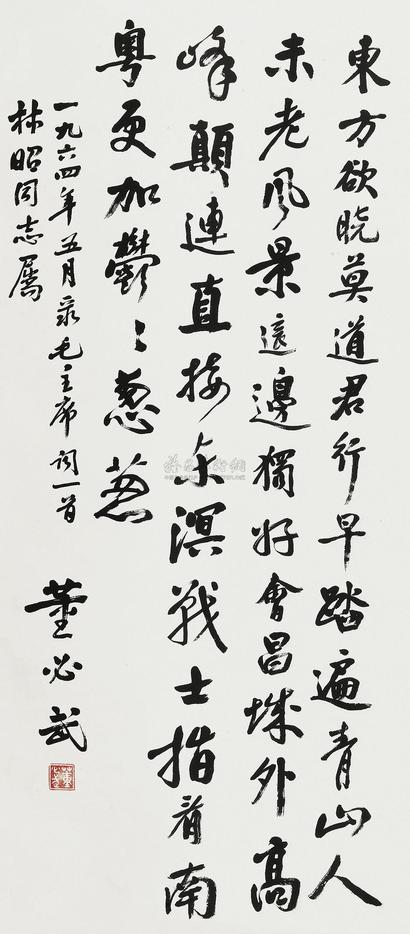 東方欲晓莫道君行早踏遍青山人
未老風景這邊獨好會昌城外高
峰顛連直接東溟戰士指看南
粤更加鬱〻蔥蔥
一九六四年五月录毛主席词一首
林昭同志属
董必武